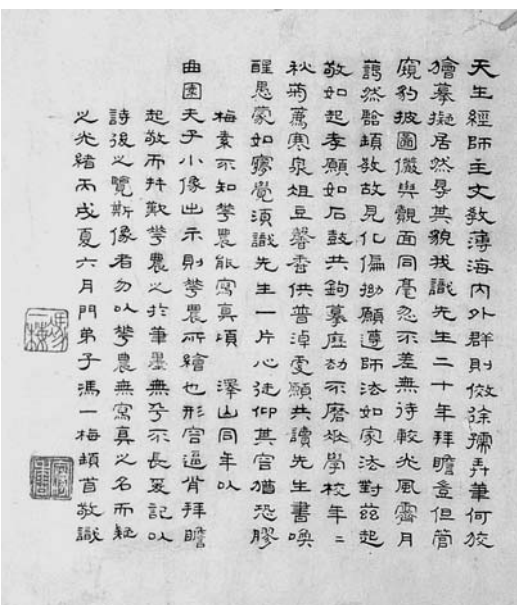 天生經師主文教薄海內外群則傚徐孺弄筆何狡
獪摹擬居然㝵其貌我識先生二十年拜瞻豈但管
窺豹披圖儼與覿面同毫忽不差無待較光風霽月
藹然教故見化偏拗願遵師法如家法對茲起
敬如起孝願如石鼓共鉤摹歷劫不磨學校年二
秋菊薦寒泉俎豆馨香供普淖更願共讀先生書喚
醒愚蒙如寤覺須識先生一片心徒仰其容猶恐膠
梅素不知華農能寫真頃 澤山同年以
曲園夫子小像出示則華農所繪也形容逼肖拜瞻
起敬而并歎華農之於筆墨無乎不長爰記以
詩後之覽斯像者勿以華農無寫真之名而疑
之光緒丙戌夏六月門弟子馮一梅頓首敬識
馮一梅